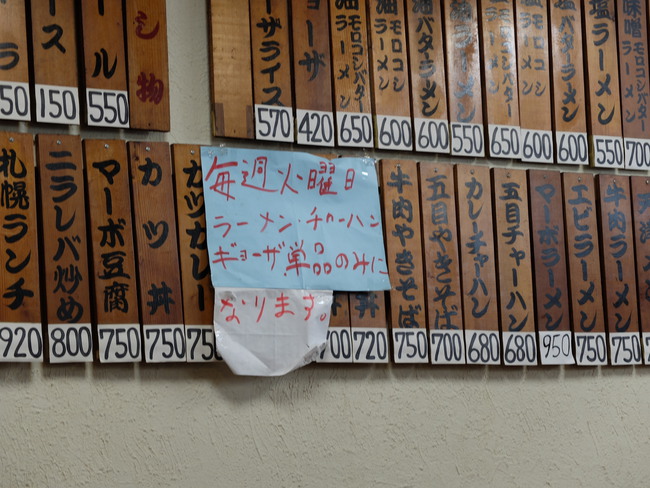 ース
150
ール
550
し物
ーザライス
570
ョーザ
420
油モロコシバター
ラーメン
650
油モロコシ
ラーメン
600
油バタラーメン
600
ラーメン
550
シバター
650
塩モロコシ
ラーメン
600
塩バタラーメン
600
塩ラーメン
550
味噌モロコシバター
ラーメン
700
札幌ランチ
920
ニラレバ炒め
800
マーボ豆腐
750
カツ丼
750
カツカレー
毎週火曜日
ラーメン・チャーハン
ギョーザ単品のみに
なります。
丼
720
牛肉やきそば
750
五目やきそば
700
カレーチャーハン
680
五目チャーハン
680
マーボラーメン
950
エビラーメン
750
牛肉ラーメン
750